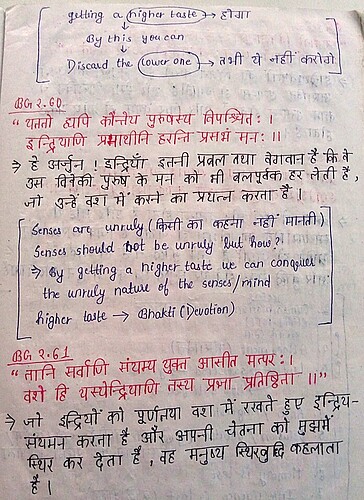 getting a higher taste → होगा
By this you can
Discard the lower one → तभी ये नहीं करोगे
BG 2.60
"यततो ह्यपि कौन्तेय पुरुषस्य विपश्चितः ।
इन्द्रियाणि प्रमाथीनि हरन्ति प्रसभं मनः ।।
⇒ हे अर्जुन ! इन्द्रियाँ इतनी प्रबल तथा वेगवान हैं कि वे
उस विवेकी पुरुष के मन को भी बलपूर्वक हर लेती है,
जो उन्हें वश में करने का प्रयत्न करता है ।
Senses are unruly (किसी का कहना नहीं मानती)
Senses should not be unruly but how?
⇒ By getting a higher taste we can conquer
the unruly nature of the senses/mind
higher taste → Bhakti (Devotion)
BG 2.61
"तानि सर्वाणि संयम्य युक्त आसीत मत्परः ।
वशे हि यस्येन्द्रियाणि तस्य प्रज्ञा प्रतिष्ठिता ।।"
⇒ जो इन्द्रियों को पूर्णतया वश में रखते हुए इन्द्रिय-
संयमन करता है और अपनी चेतना को मुझमें
स्थिर कर देता है, वह मनुष्य स्थिरबुद्धि कहलाता
है ।